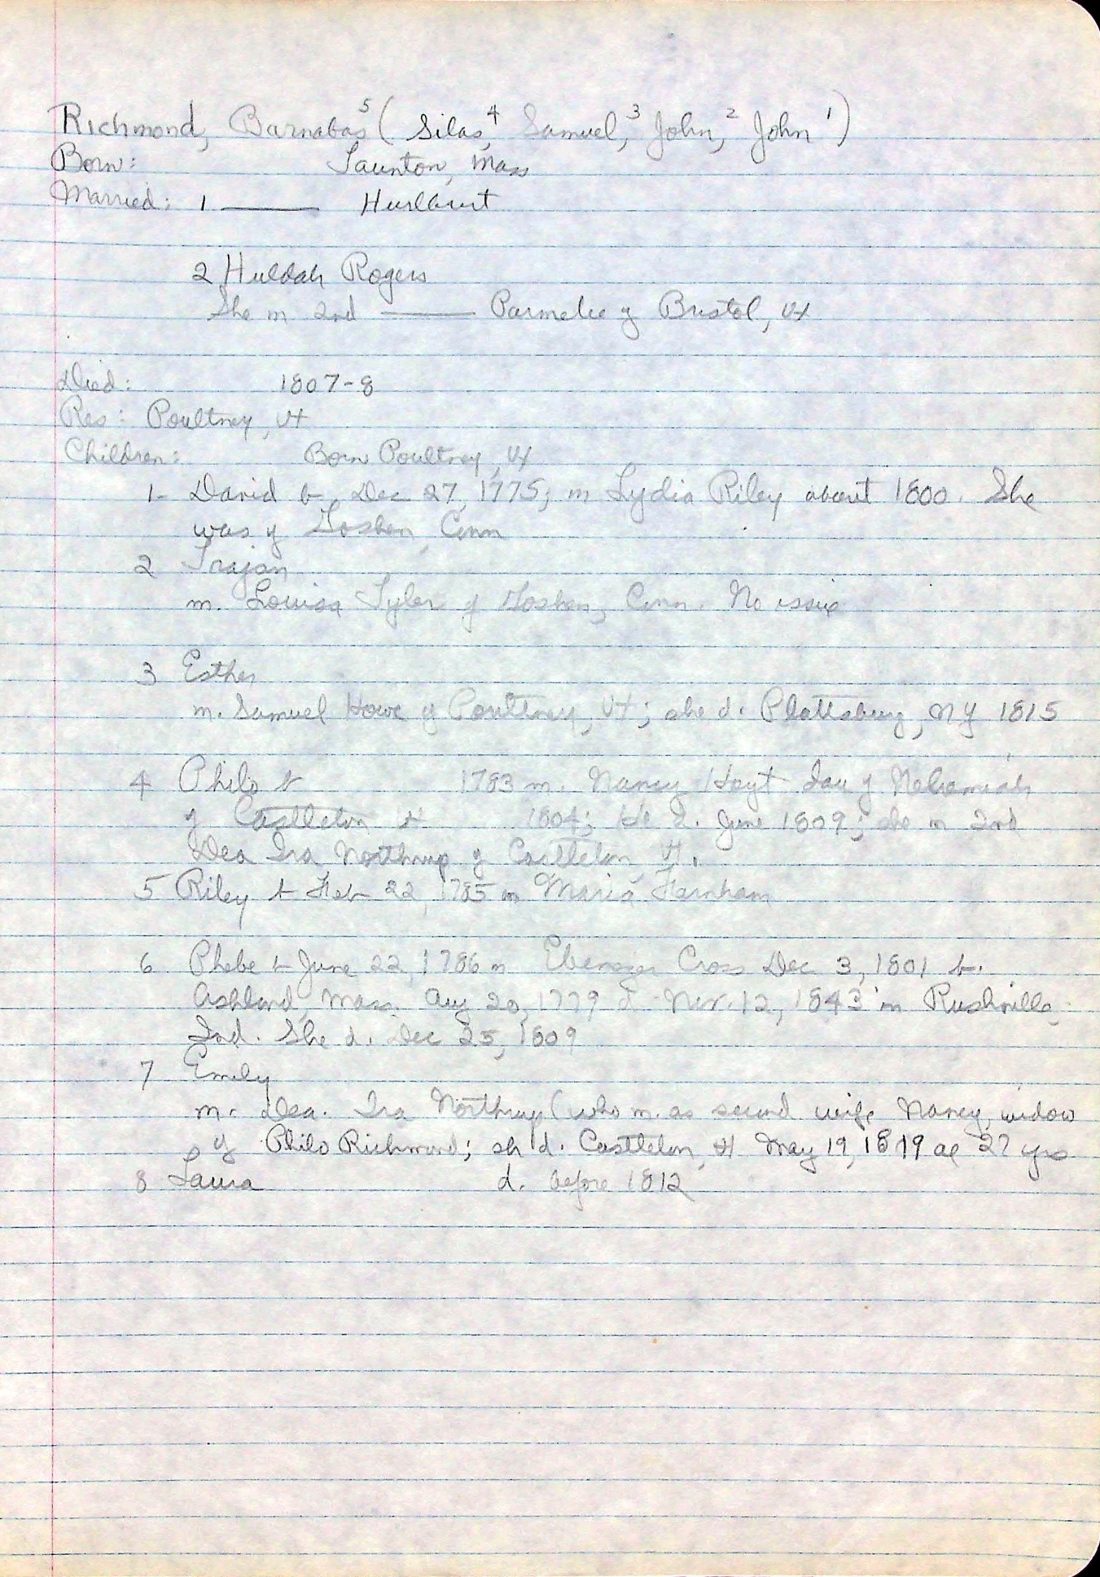 Richmond, Barnabas⁵ ( Silas,⁴ Samuel,³ John,² John ¹)
Born: Taunton, Mass
Married: 1 ——— Hurlburt
2 Huldah Rogers
She m 2nd ——— Parmelee of Bristol, Vt
Died: 1807-8
Res: Poultney, Vt
Children: Born Poultney, Vt
1- David b. Dec 27, 1775; m Lydia Riley about 1800. She
was of Goshen, Conn
2 Trajan
m. Louisa Tyler of Goshen, Conn. No issue
3 Esther
m. Samuel Howe of Poultney, Vt; she d. Plattsburg, NY 1815
4 Philo b 1783 m. Nancy Hoyt dau of Nehemiah
of Castleton Vt 1804; He d. June 1809; she m 2nd
Dea Ira Northrup of Castleton, Vt.
5 Riley b Feb 22, 1785 m Maria Farnham
6 Phebe b June 22, 1786 m Ebenezer Cross Dec 3, 1801 b.
Ashland, Mass. Aug 20, 1779 d. Nov. 12, 1843 in Rushville,
Ind. She d. Dec 25, 1809
7 Emily
m. Dea. Ira Northrup (who m. as second wife Nancy, widow
of Philo Richmond; sh d. Castleton, Vt May 19, 1819 ae 27 yrs
8 Laura d. before 1812